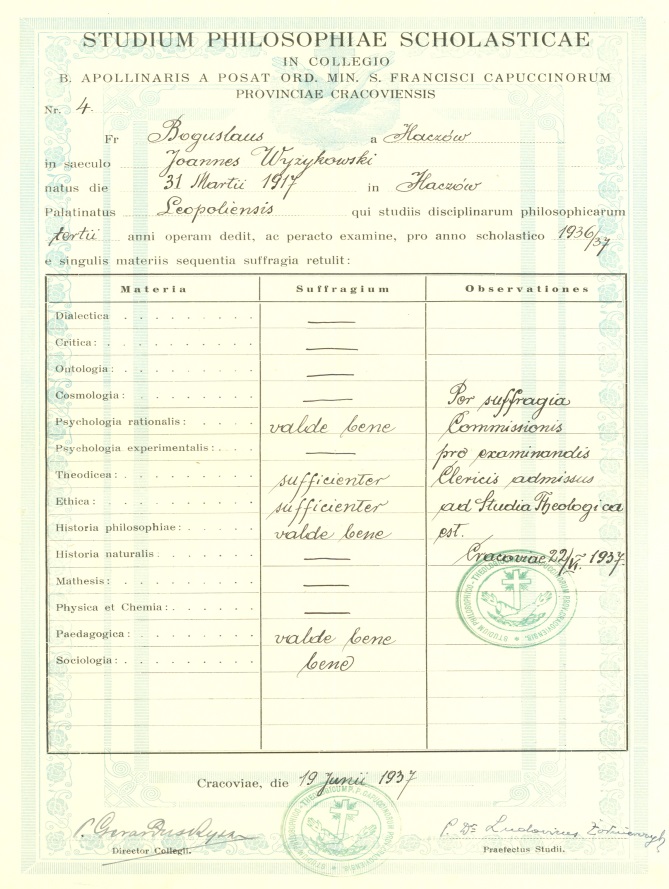 STUDIUM PHILOSOPHIAE SCHOLASTICAE
IN COLLEGIO
B. APOLLINARIS A POSAT ORD. MIN. S. FRANCISCI CAPUCCINORUM
PROVINCIAE CRACOVIENSIS
Nr. 4.
Fr Boguslaus a Haczów
in saeculo Joannes Wyżykowski
natus die 31 Martii 1917 in Haczów
Palatinatus Leopoliensis qui studiis disciplinarum philosophicarum
tertii anni operam dedit, ac peracto examine, pro anno scholastico 1936/37
e singulis materiis sequentia suffragia retulit:
Materia Suffragium Observationes
Dialectica —
Critica: —
Ontologia: —
Cosmologia: — Per suffragia
Psychologia rationalis: valde bene Commissionis
Psychologia experimentalis: — pro examinandis
Theodicea: sufficienter Clericis admissus
Ethica: sufficienter ad Studia Theologica
Historia philosophiae: valde bene est.
Historia naturalis: — Cracoviae 22/VI. 1937.
Mathesis: —
Physica et Chemia: —
Paedagogica: valde bene
Sociologia: bene
Cracoviae, die 19 Junii 1937
P. P. Dr Ludovicus
Director Collegii. Praefectus Studii.